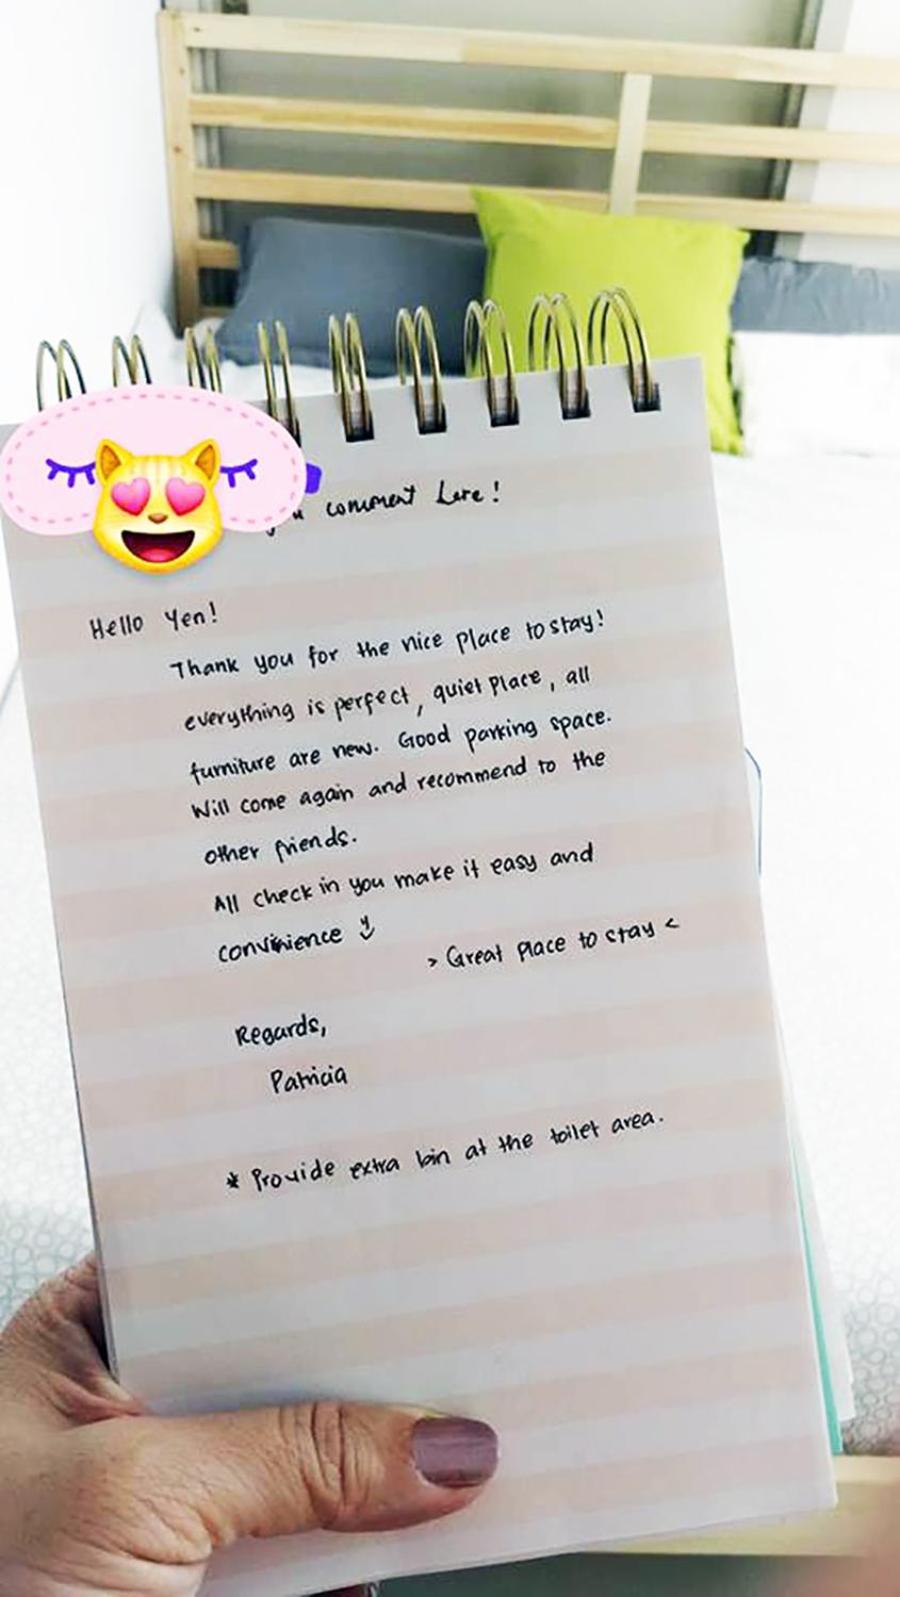 comment here!
Hello Yen!
Thank you for the nice place to stay!
everything is perfect, quiet place, all
furniture are new. Good parking space.
Will come again and recommend to the
other friends.
All check in you make it easy and
convinience
> Great place to stay <
Regards,
Patricia
* Provide extra bin at the toilet area.